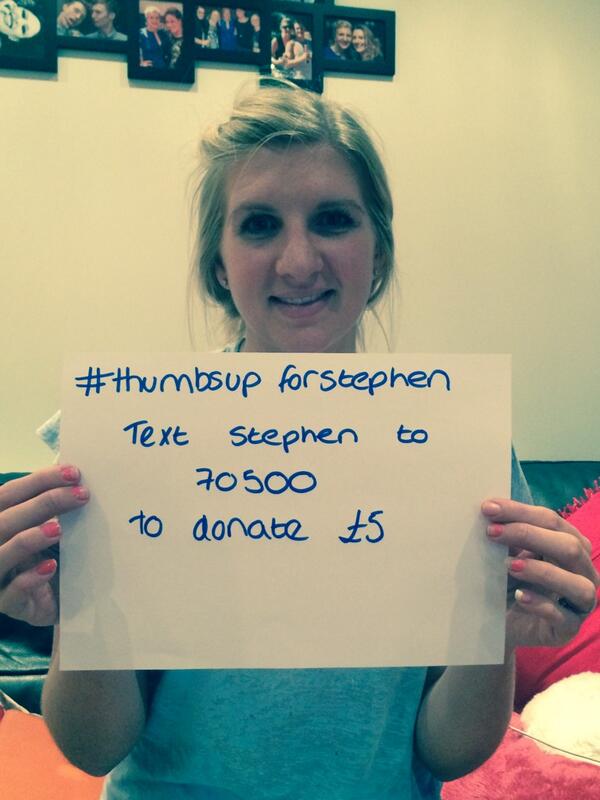 #thumbsup forstephen
Text Stephen to
70500
to donate £5